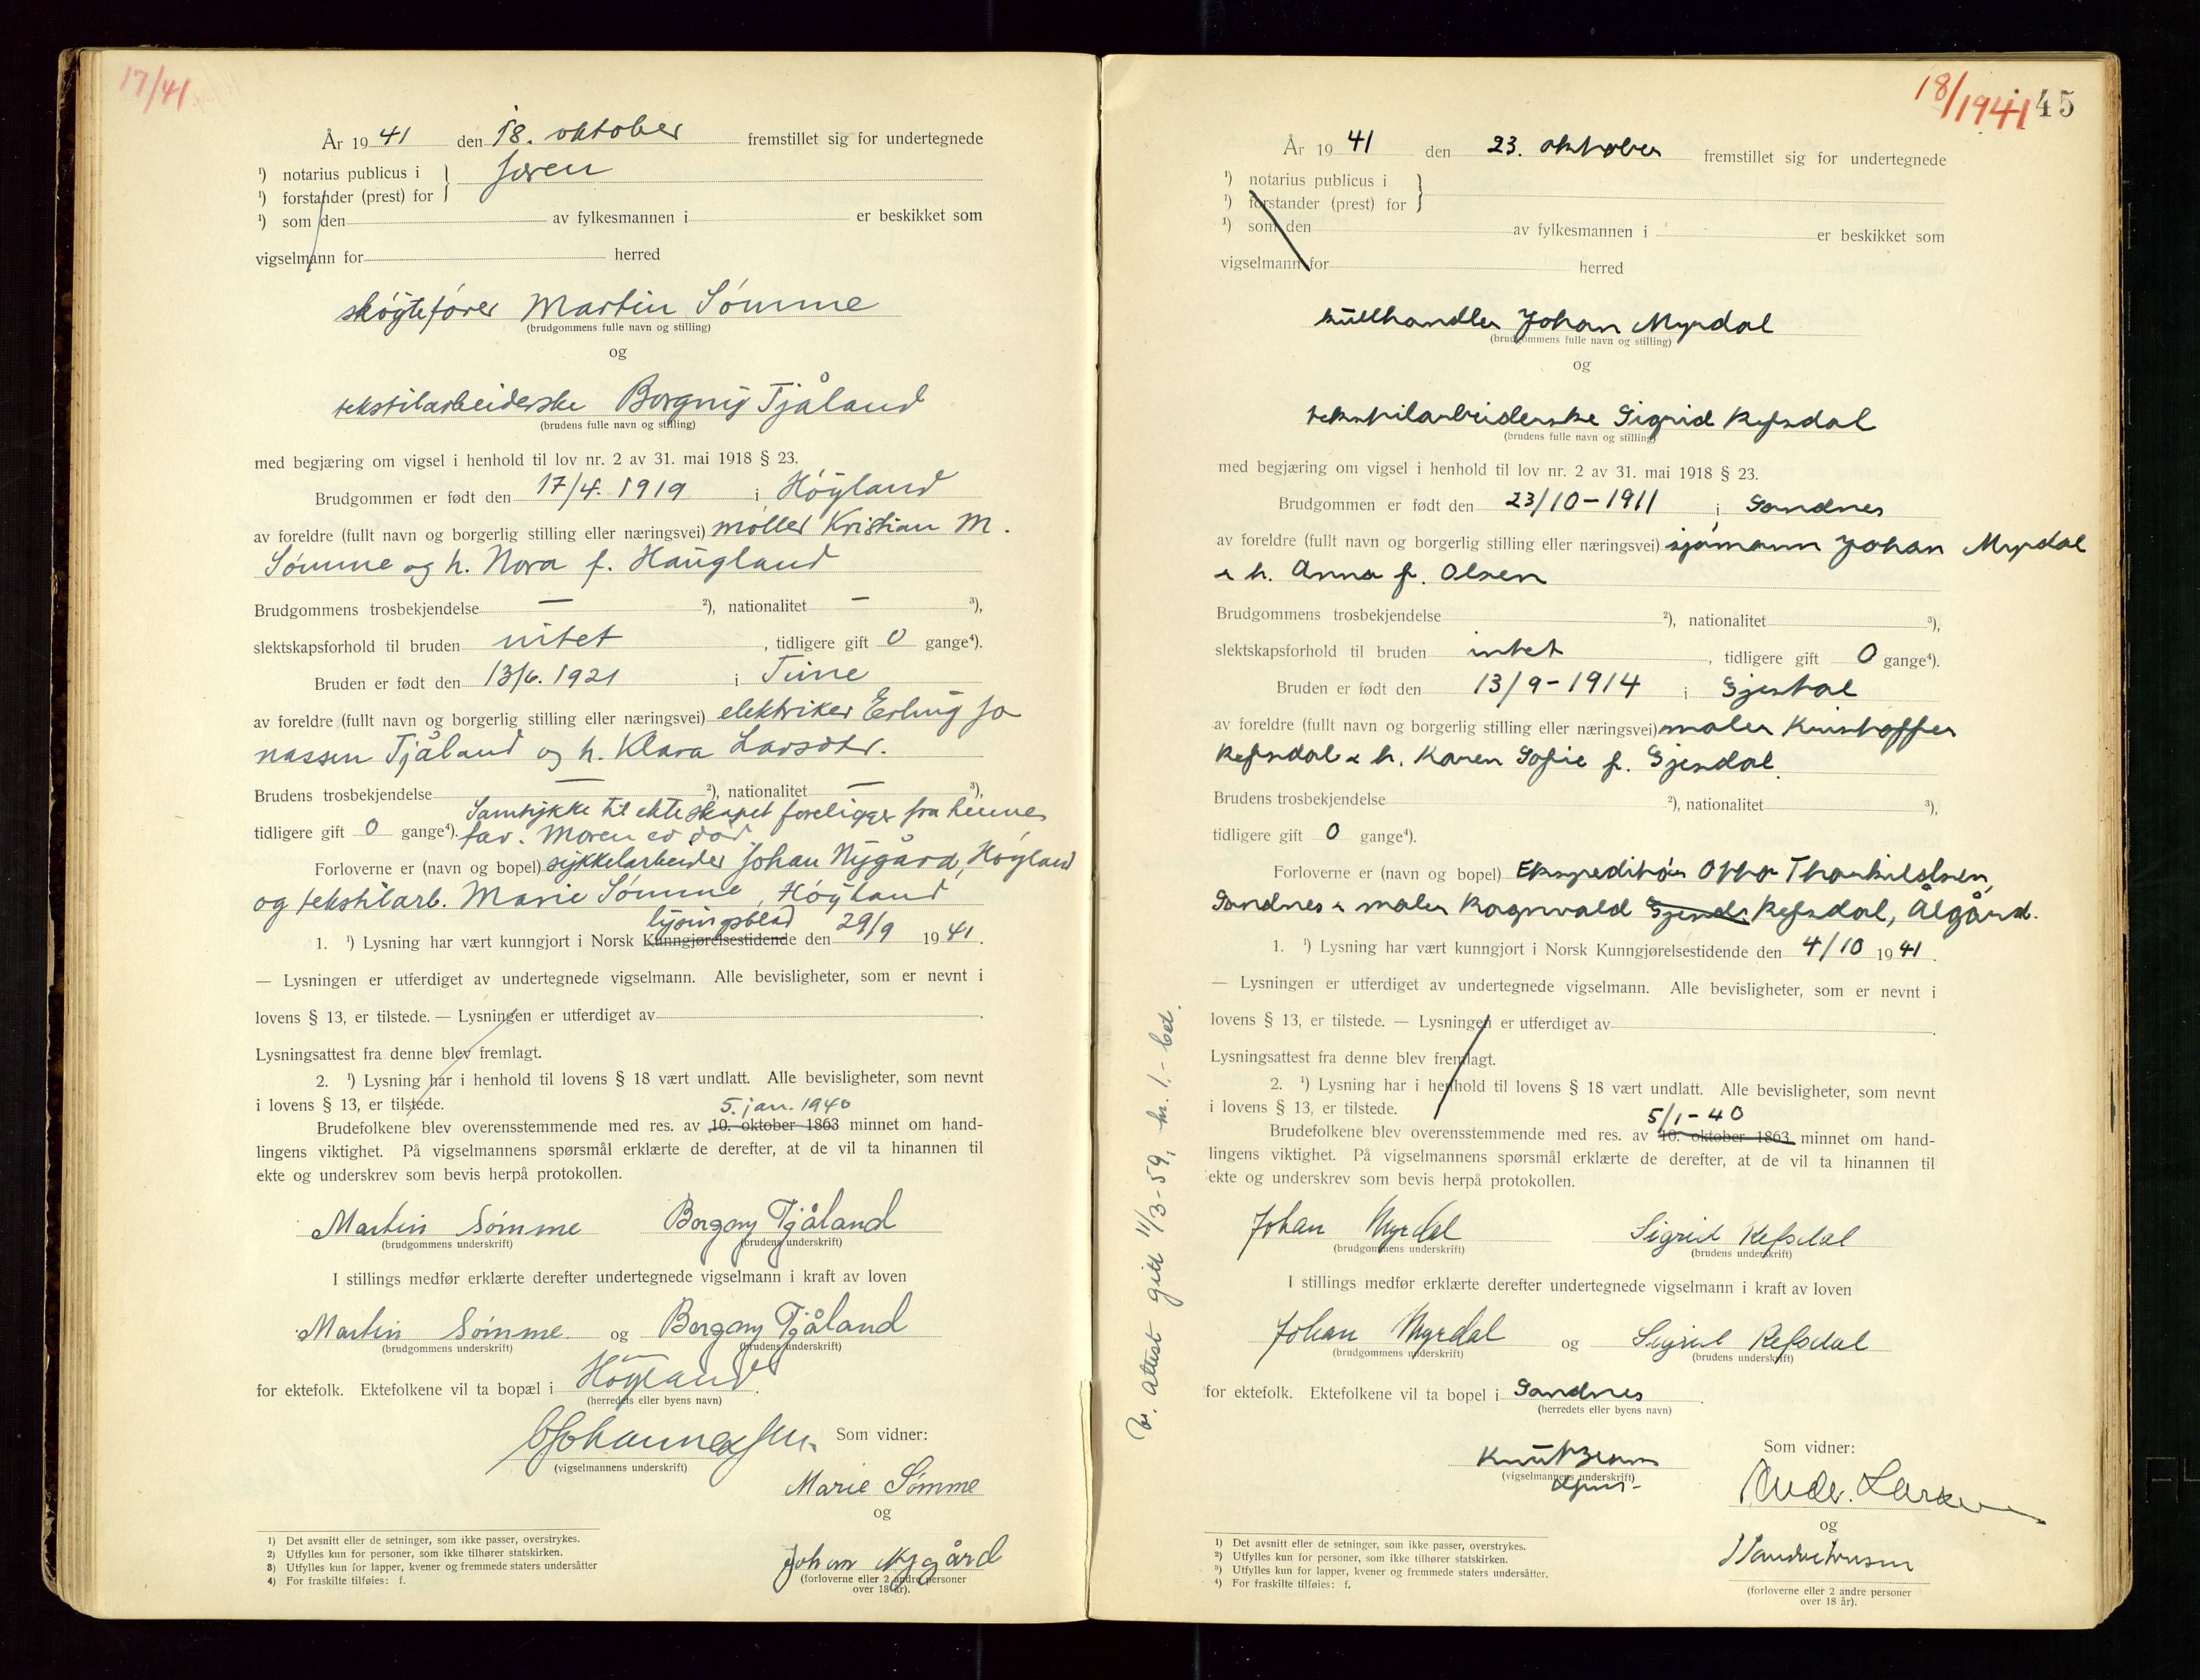 17/41
År 1941 den 18. oktober fremstillet sig for undertegnede
¹) notarius publicus i } Jæren
¹) forstander (prest) for
¹) som den av fylkesmannen i er beskikket som
vigselmann for herred
skøytefører Martin Sømme
(brudgommens fulle navn og stilling)
og
tekstilarbeiderske Borgny Tjåland
(brudens fulle navn og stilling)
med begjæring om vigsel i henhold til lov nr. 2 av 31. mai 1918 § 23.
Brudgommen er født den 17/4. 1919 i Høyland
av foreldre (fullt navn og borgerlig stilling eller næringsvei) møller Kristian M.
Sømme og h. Nora f. Haugland
Brudgommens trosbekjendelse — ²), nationalitet — ³),
slektskapsforhold til bruden intet, tidligere gift 0 gange⁴).
Bruden er født den 13/6. 1921 i Time
av foreldre (fullt navn og borgerlig stilling eller næringsvei) elektriker Erling Jo
nassen Tjåland og h. Klara Larsdtr.
Brudens trosbekjendelse — ²), nationalitet — ³),
Samtykke til ekteskapet foreligger fra hennes
tidligere gift 0 gange⁴). far. Moren er død
Forloverne er (navn og bopel) sykkelarbeider Johan Nygård, Høyland
og tekstilarb. Marie Sømme, Høyland
lysingsblad
1. ¹) Lysning har vært kunngjort i Norsk Kunngjørelsestidende den 29/9 1941.
— Lysningen er utferdiget av undertegnede vigselmann. Alle bevisligheter, som er nevnt i
lovens § 13, er tilstede. — Lysningen er utferdiget av .
Lysningsattest fra denne blev fremlagt.
2. ¹) Lysning har i henhold til lovens § 18 vært undlatt. Alle bevisligheter, som nevnt
i lovens § 13, er tilstede.
5. jan. 1940
Brudefolkene blev overensstemmende med res. av 10. oktober 1863 minnet om hand-
lingens viktighet. På vigselmannens spørsmål erklærte de derefter, at de vil ta hinannen til
ekte og underskrev som bevis herpå protokollen.
Martin Sømme Borgny Tjåland
(brudgommens underskrift) (brudens underskrift)
I stillings medfør erklærte derefter undertegnede vigselmann i kraft av loven
Martin Sømme og Borgny Tjåland
(brudgommens underskrift) (brudens underskrift)
for ektefolk. Ektefolkene vil ta bopæl i Høyland.
(herredets eller byens navn)
Johannessen. Som vidner:
(vigselmannens underskrift)
Marie Sømme
og
Johan Nygård
(forloverne eller 2 andre personer
over 18 år).
1) Det avsnitt eller de setninger, som ikke passer, overstrykes.
2) Utfylles kun for personer, som ikke tilhører statskirken.
3) Utfylles kun for lapper, kvener og fremmede staters undersåtter
4) For fraskilte tilføies: f.
18/1941 45
År 1941 den 23. oktober fremstillet sig for undertegnede
¹) notarius publicus i }
¹) forstander (prest) for
¹) som den av fylkesmannen i er beskikket som
vigselmann for herred
kullhandler Johan Myrdal
(brudgommens fulle navn og stilling)
og
tekstilarbeiderske Sigrid Refsdal
(brudens fulle navn og stilling)
med begjæring om vigsel i henhold til lov nr. 2 av 31. mai 1918 § 23.
Brudgommen er født den 23/10-1911 i Sandnes
av foreldre (fullt navn og borgerlig stilling eller næringsvei) sjømann Johan Myrdal
& h. Anna f. Olsen
Brudgommens trosbekjendelse ²), nationalitet ³),
slektskapsforhold til bruden intet, tidligere gift 0 gange⁴).
Bruden er født den 13/9-1914 i Gjestal
av foreldre (fullt navn og borgerlig stilling eller næringsvei) maler Kristoffer
Refsdal & h. Karen Sofie f. Gjesdal.
Brudens trosbekjendelse ²), nationalitet ³),
tidligere gift 0 gange⁴).
Forloverne er (navn og bopel) Ekspeditør Otto Thorkildsen,
Sandnes & maler Ragnvald Gjesd Refsdal, Ålgård.
1. ¹) Lysning har vært kunngjort i Norsk Kunngjørelsestidende den 4/10 1941.
— Lysningen er utferdiget av undertegnede vigselmann. Alle bevisligheter, som er nevnt i
lovens § 13, er tilstede. — Lysningen er utferdiget av .
Lysningsattest fra denne blev fremlagt.
2. ¹) Lysning har i henhold til lovens § 18 vært undlatt. Alle bevisligheter, som nevnt
i lovens § 13, er tilstede.
5/1-40
Brudefolkene blev overensstemmende med res. av 10. oktober 1863 minnet om hand-
lingens viktighet. På vigselmannens spørsmål erklærte de derefter, at de vil ta hinannen til
ekte og underskrev som bevis herpå protokollen.
Johan Myrdal Sigrid Refsdal
(brudgommens underskrift) (brudens underskrift)
I stillings medfør erklærte derefter undertegnede vigselmann i kraft av loven
Johan Myrdal og Sigrid Refsdal
(brudgommens underskrift) (brudens underskrift)
for ektefolk. Ektefolkene vil ta bopel i Sandnes.
(herredets eller byens navn)
Som vidner:
Knut
(vigselmannens underskrift)
Larsen
og
(forloverne eller 2 andre personer
over 18 år).
1) Det avsnitt eller de setninger, som ikke passer, overstrykes.
2) Utfylles kun for personer, som ikke tilhører statskirken.
3) Utfylles kun for lapper, kvener og fremmede staters undersåtter.
4) For fraskilte tilføies: f.
V. attest gitt 11/3-59, kr. 1,- bet.